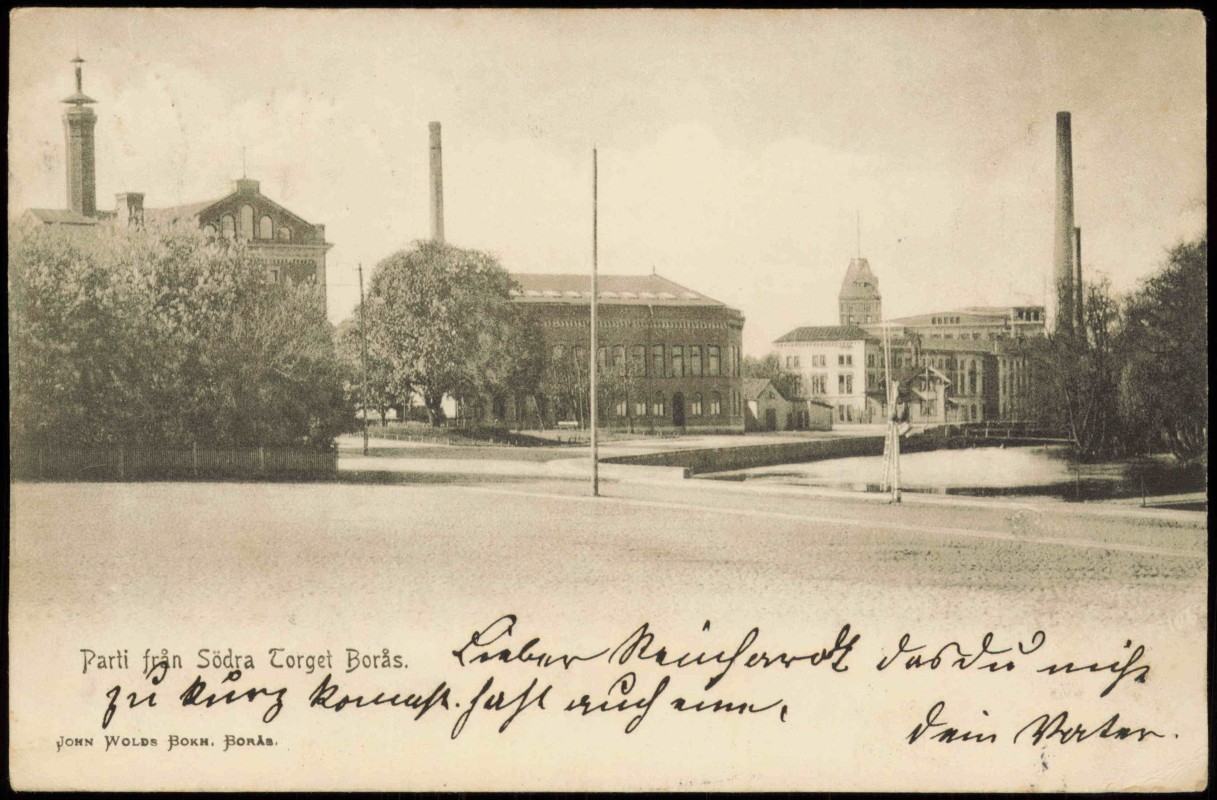 Parti från Södra Torget Borås.
Lieber Reinhardt das du nicht
zu kurz kommst. hast auch eine,
dein Vater.
JOHN WOLDS BOKH. BORÅS.